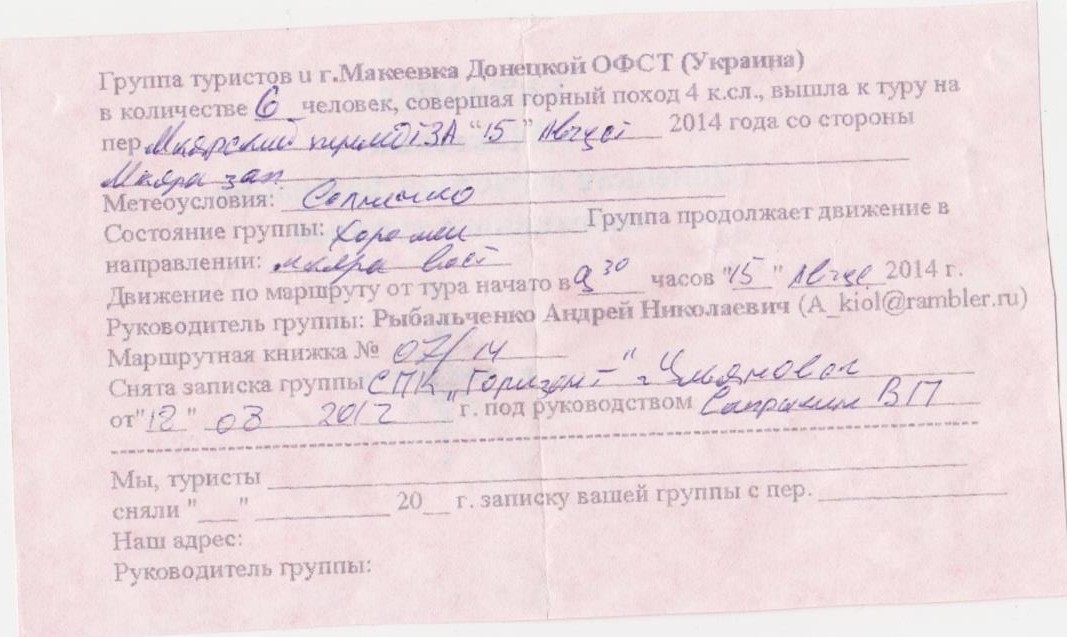 Группа туристов и г.Макеевка Донецкой ОФСТ (Украина)
в количестве 6 человек, совершая горный поход 4 к.сл., вышла к туру на
пер Мкярский 3А "15" Август 2014 года со стороны
Мкяра зап.
Метеоусловия: Солнечно
Состояние группы: Хорошее Группа продолжает движение в
направлении: мкяра вост
Движение по маршруту от тура начато в 9 30 часов "15" Авгус 2014 г.
Руководитель группы: Рыбальченко Андрей Николаевич (A_kiol@rambler.ru)
Маршрутная книжка № 07/14
Снята записка группы СПК "Горизонт" г. Ульяновск
от "12" 08 2012 г. под руководством ВП
Мы, туристы
сняли "___" 20__ г. записку вашей группы с пер.
Наш адрес:
Руководитель группы: